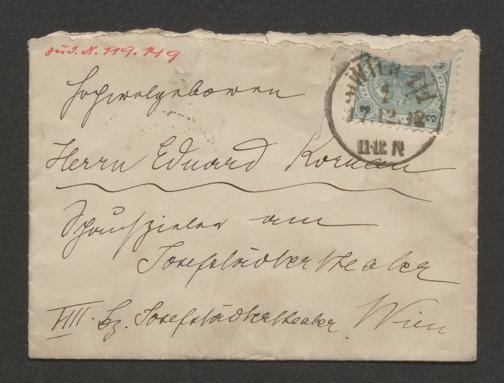 zu I. N. 119.719
Hochwolgeboren
Herrn Eduard
Schauspieler am
Josefstädtertheater
VIII. Bz. Josefstädtertheater. Wien
WIEN
3 3
11-12 V